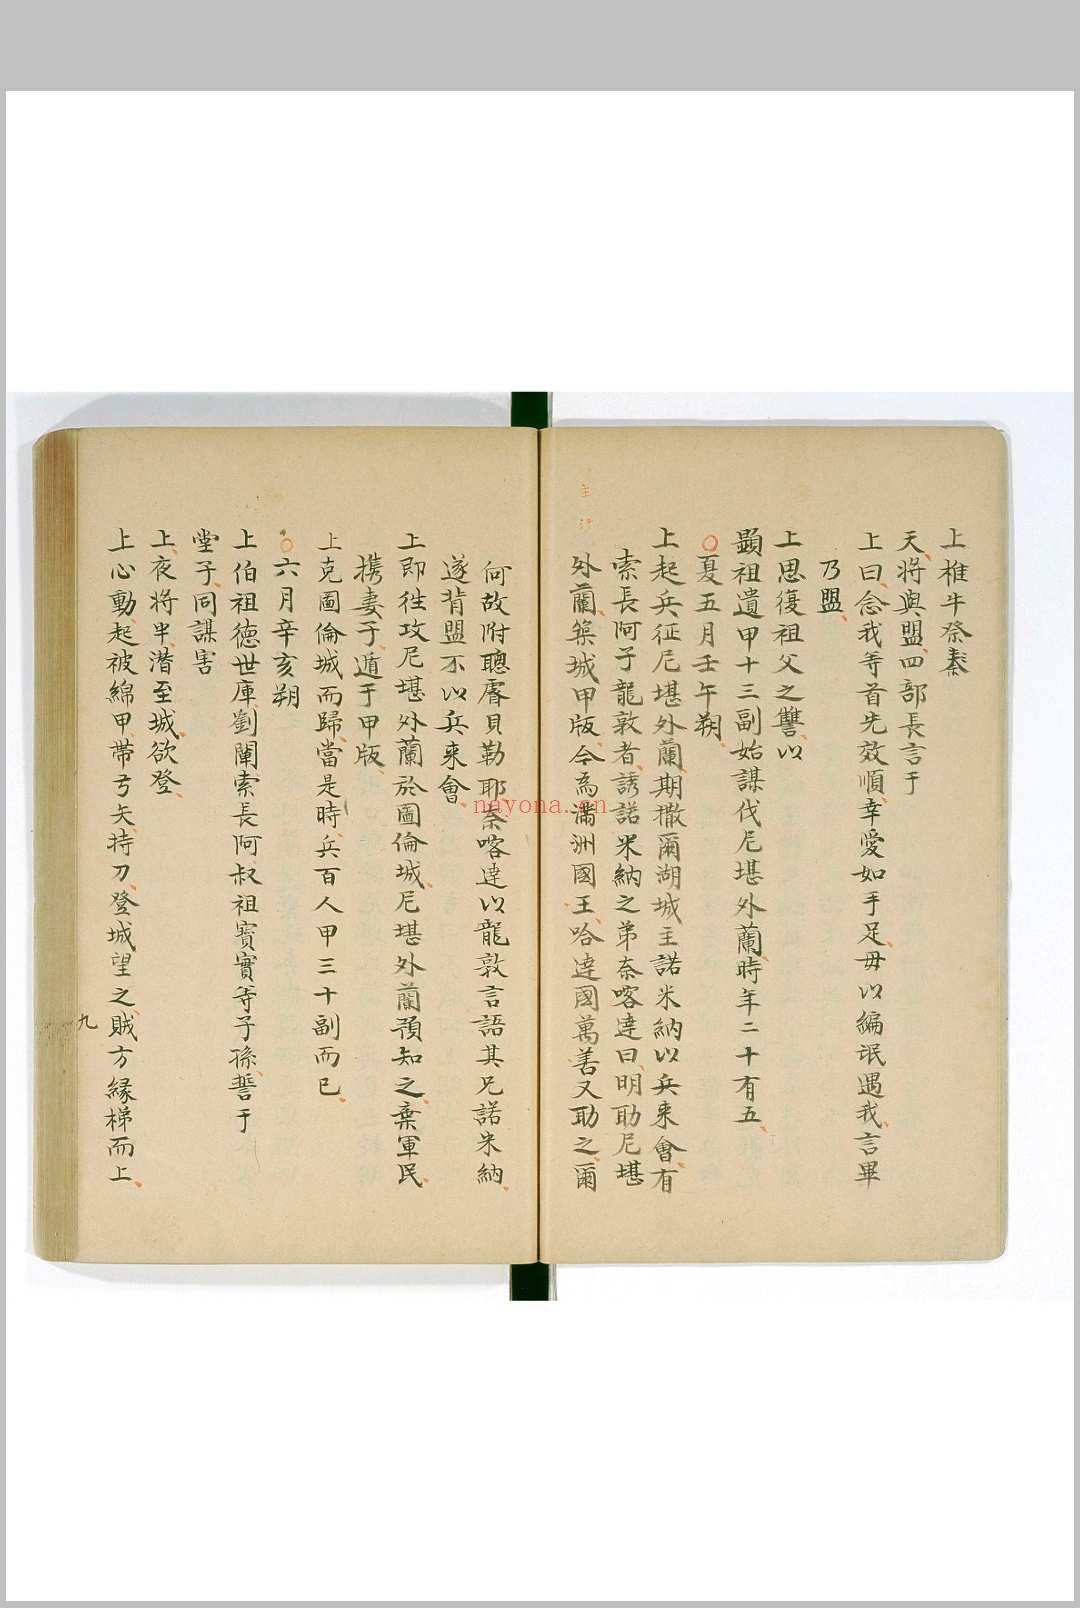 上椎牛祭纛
天、將與盟、四部長言于
上曰、念我等首先效順、幸愛如手足、毋以編氓遇我、言畢
乃盟、
上思復祖父之讐、以
顯祖遺甲十三副、始謀伐尼堪外蘭、時年二十有五、
○夏五月壬午朔、
上起兵征尼堪外蘭、期撒爾湖城主諾米納以兵來會、有
索長阿子龍敦者、誘諾米納之弟奈喀達曰、明助尼堪
外蘭、築城甲版、令爲滿洲國王、哈達國萬善又助之、爾
何故附聰睿貝勒耶、奈喀達以龍敦言語其兄諾米納、
遂背盟不以兵來會、
上即往攻尼堪外蘭於圖倫城、尼堪外蘭預知之、棄軍民、
携妻子、遁于甲版、
上克圖倫城而歸、當是時、兵百人甲三十副而已、
○六月辛亥朔
上伯祖德世庫、劉闡、索長阿、叔祖寶實等子孫、誓于
堂子、同謀害
上、夜將半、潛至城、欲登、
上心動、起被綿甲、帶弓矢、持刀登城望之、賊方緣梯而上、
九
nayona.cn